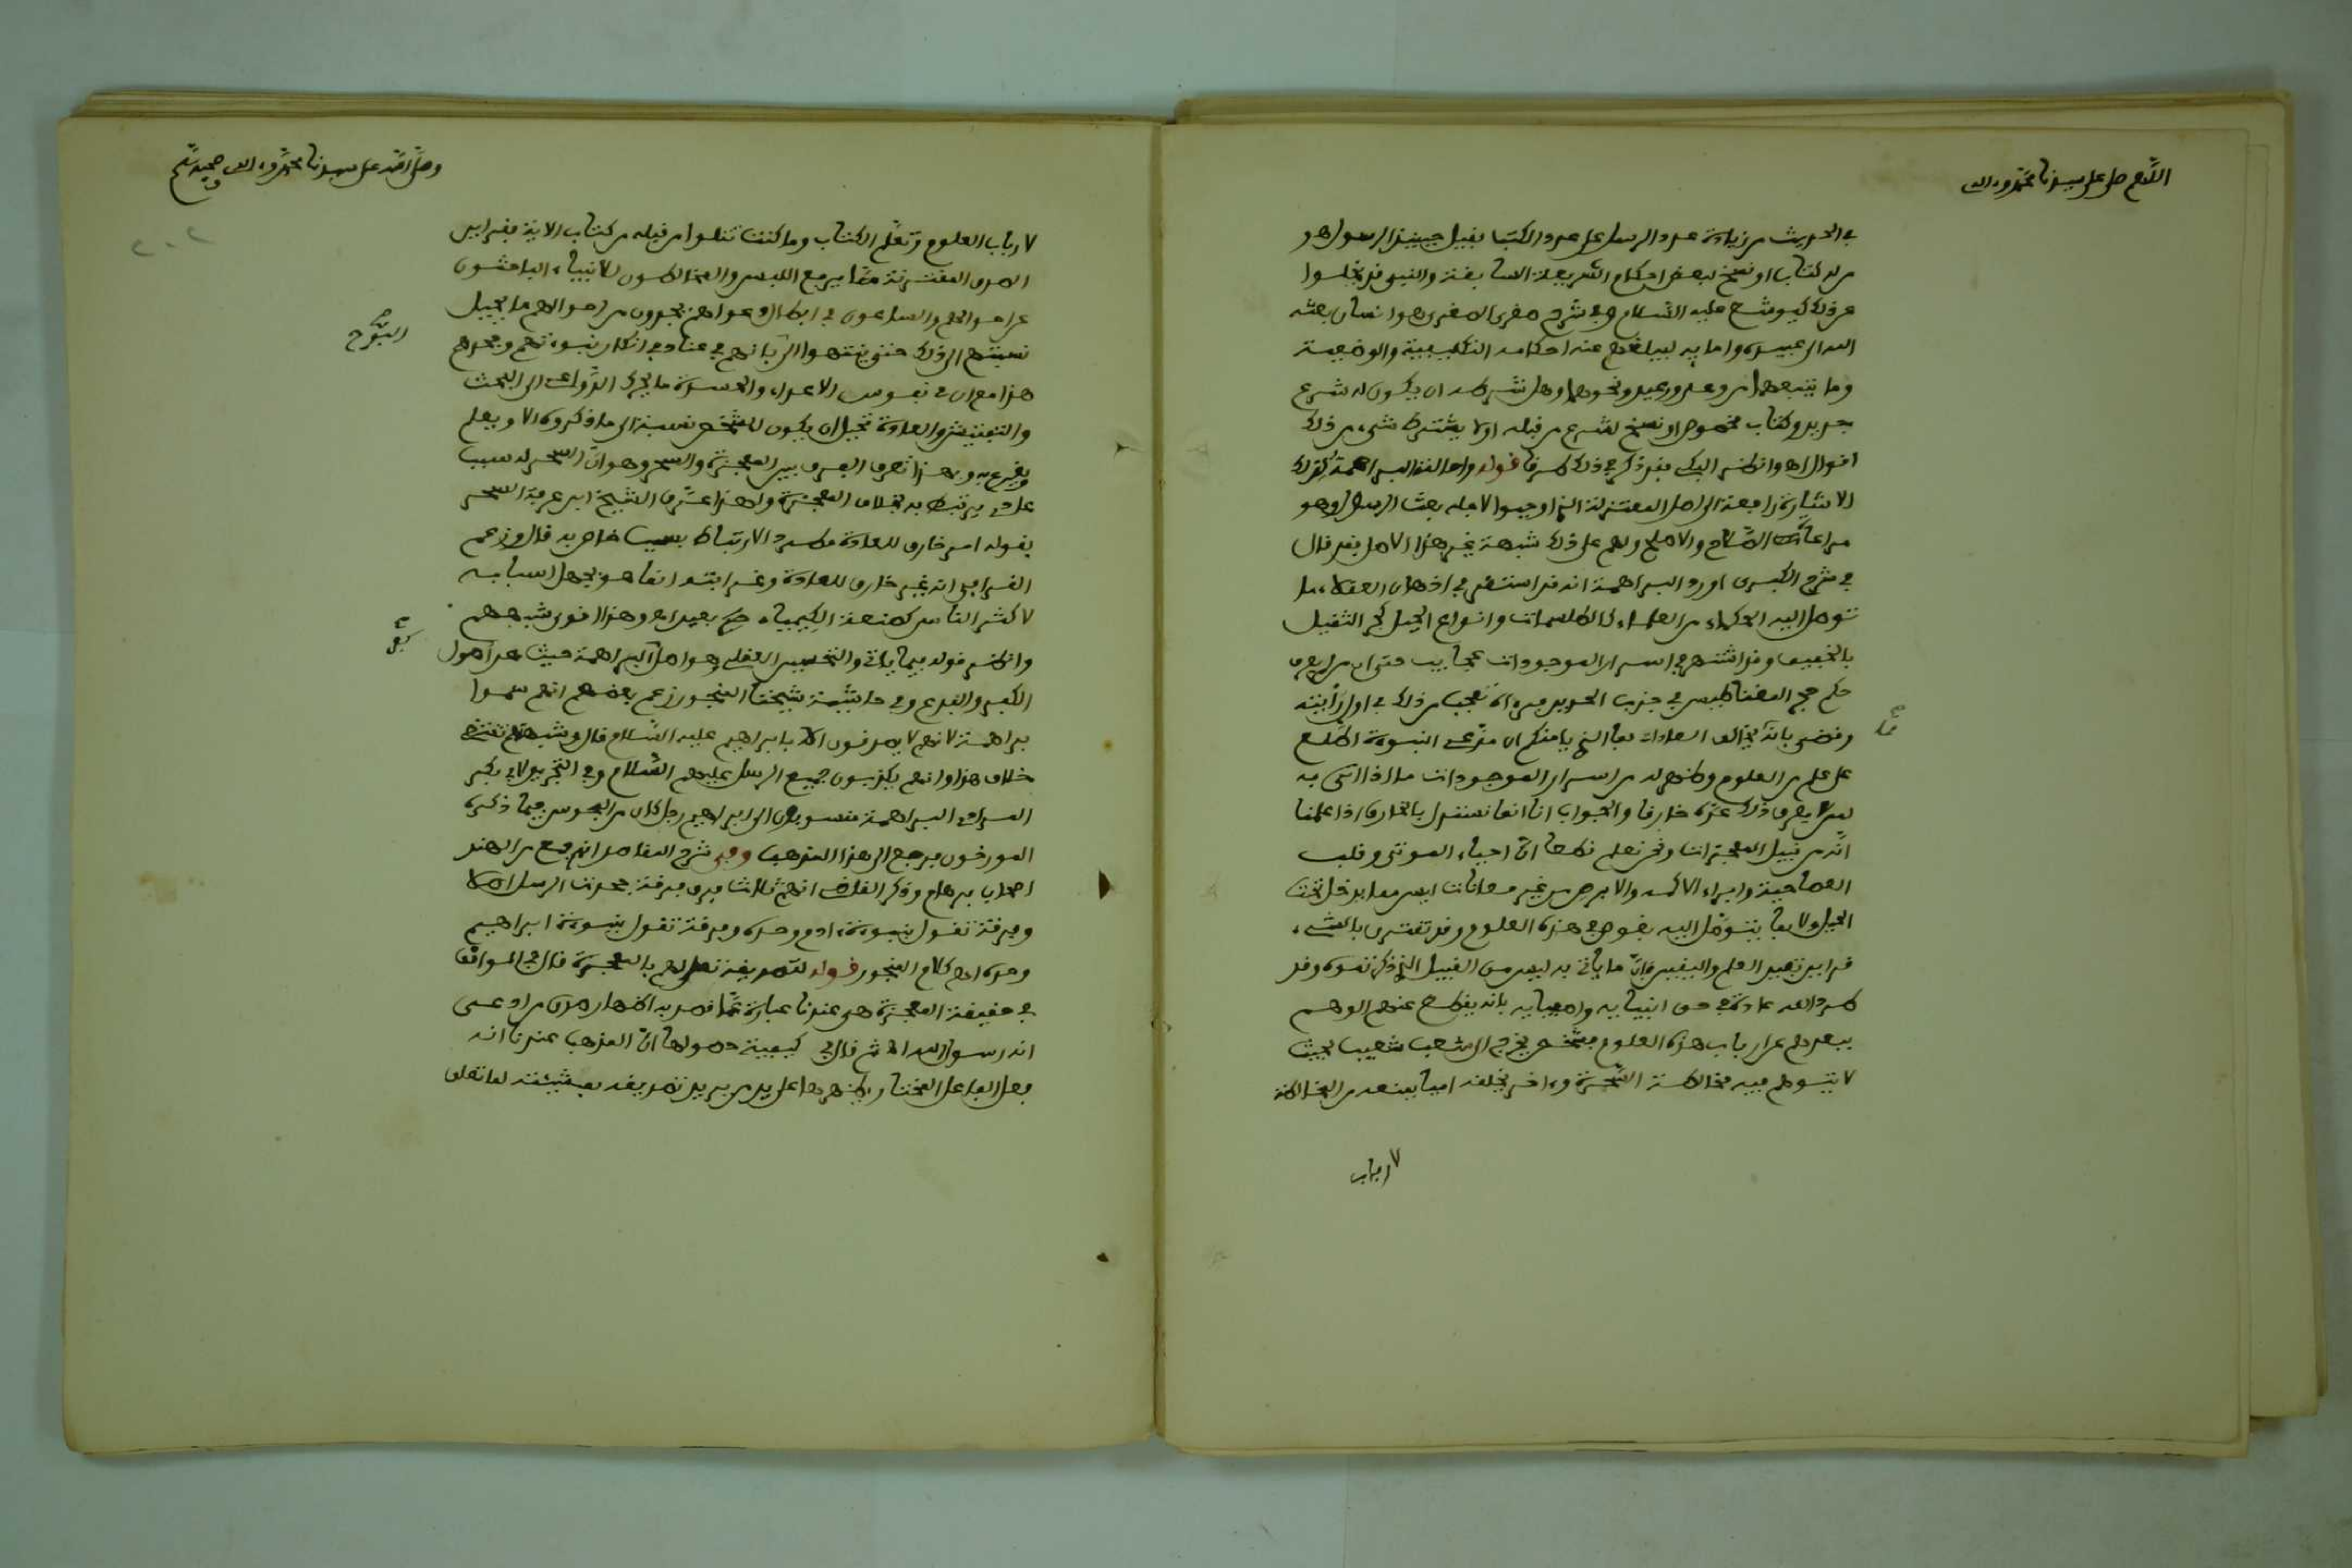 اللهم صل على سيدنا محمد وءاله
في الحديث من زيادة عدد الرسل على عدد الكتب فقيل حينئذ الرسول هو
من له كتاب او نسخ لبعض احكام الشريعة السابقة والنبي قد يخلوا
عن ذلك كيوشع عليه السلام وفي شرح صغرى الصغرى هو انسان بعثه
الله الى عبيده وامايه ليبلغهم عنه احكامه التكليفية والوضعية
وما يتبعهما من وعد ووعيد ونحوهما وهل شرطه ان يكون له شرع
جديد وكتاب مخصوص او نسخ لشرع من قبله اولا يشترط شيء من ذلك
اقوال اه وانظر اليكي فقد ذكر في ذلك طرقا قوله واحالته البراهمة كذلك
الاشارة راجعة الى اصل المعتزلة الذي اوجبوا لاجله بعث الرسل وهو
مراعاة الصلاح والاصلح ولهم على ذلك شبهة غير هذا الاصل فقد قال
في شرح الكبرى اورد البراهمة انه قد استقر في اذهان العقلاء ما
توصل اليه الحكماء من العلماء كالطلسمات وانواع الحيل كجر الثقيل
بالخفيف وقد اشتهر في اسرار الموجودات عجايب حتى ان من لم يعرف
حكم حجر المغناطيس في جذب الحديد وراه تعجب من ذلك في اول رأيته
وقضى بانه يخالف العادات فما الذي يامنكم ان مدعي النبوة اطلع
على علم من العلوم وظهر له من اسرار الموجودات ما اذا اتى به
لمن لا يعرف ذلك عده خارقا والجواب انا انما نستدل بالخارق اذا علمنا
انه من قبيل المعجزات ونحن نعلم قطعا ان احياء الموتى وقلب
العصا حية وابراء الاكمه والابرص من غير معانات ليس مما يدخل تحت
الحيل ولا مما يتوصل اليه بغوص في هذه العلوم وقد تقترن بالشيء
قراين تفيد العلم واليقين فان ما ياتي به ليس من القبيل الذي ذكرتموه وقد
طرد الله عادته في حق انبيايه واصفيايه بانه يقطع عنهم الوهم
ببعدهم عن ارباب هذه العلوم فشخص يخرج الى شعب شعيب بحيث
لا يتوهم فيه مخالطة السحرة وءاخر يخلقه اميا يمنعه من المخالطة
لارباب
وصلى الله على سيدنا محمد وءاله وصحبه وسلم
٢٠٢
لارباب العلوم وتعلم الكتاب وما كنت تتلوا من قبله من كتاب الاية فقراين
الصدق المقترنة مما يرفع اللبس والمخالطون للانبياء الباحثون
عن احوالهم والساعون في ابطال دعواهم يجدون من احوالهم ما يحيل
نسبتهم الى ذلك حتى ينتهوا الى
هذا مع ان في نفوس الاعداء والحسدة ما يحرك الدواعي الى البحث
والتفتيش والعادة تحيل ان يكون للشخص نسبة الى ما ذكروه الا ويعلم
ويقرع به وبهذا تعرف الفرق بين المعجزة والسحر وهو ان السحر له سبب
عادي يرتبط به بخلاف المعجزة ولهذا عرف الشيخ ابن عرفة السحر
بقوله امر خارق للعادة مطرد الارتباط بسبب خاص به قال وزعم
القرافي انه غير خارق للعادة وغرابته انما هو بجهل اسبابه
لاكثر الناس كصنعة الكيمياء بعيد اه وهذا اقوى شبههم
وانظر قوله فيما ياتي والتحسين العقلي وهو اصل البراهمة حيث عد اصول
الكفر والبدع وفي حاشية شيخنا المنجور زعم بعضهم انهم سموا
براهمة لانهم لا يصدقون الا بابراهيم عليه السلام قال وشبهتهم تقتضي
خلاف هذا وانهم يكذبون جميع الرسل عليهم السلام وفي التجريد لابي بكر
المرادي البراهمة منسوبون الى ابراهيم رجل كان من المجوس فيما ذكره
المورخون فرجع الى هذا المذهب وفي شرح المقاصد انهم جمع من الهند
اصحاب برهام وذكر القاضي انهم ثلاث فرق فرقة جحدت الرسل اصلا
وفرقة تقول بنبوة ءادم وحده وفرقة تقول بنبوة ابراهيم
وحده اه كلام المنجور قوله لتصديقه تعلى لهم بالمعجزة قال في المواقف
في حقيقة المعجزة هي عندنا عبارة عما قصد به اظهار صدق من ادعى
انه رسول الله اه ثم قال في كيفية حصولها ان المذهب عندنا انه
فعل الفاعل المختار يظهرها على يد من يريد تصديقه بمشيئته لما تعلق